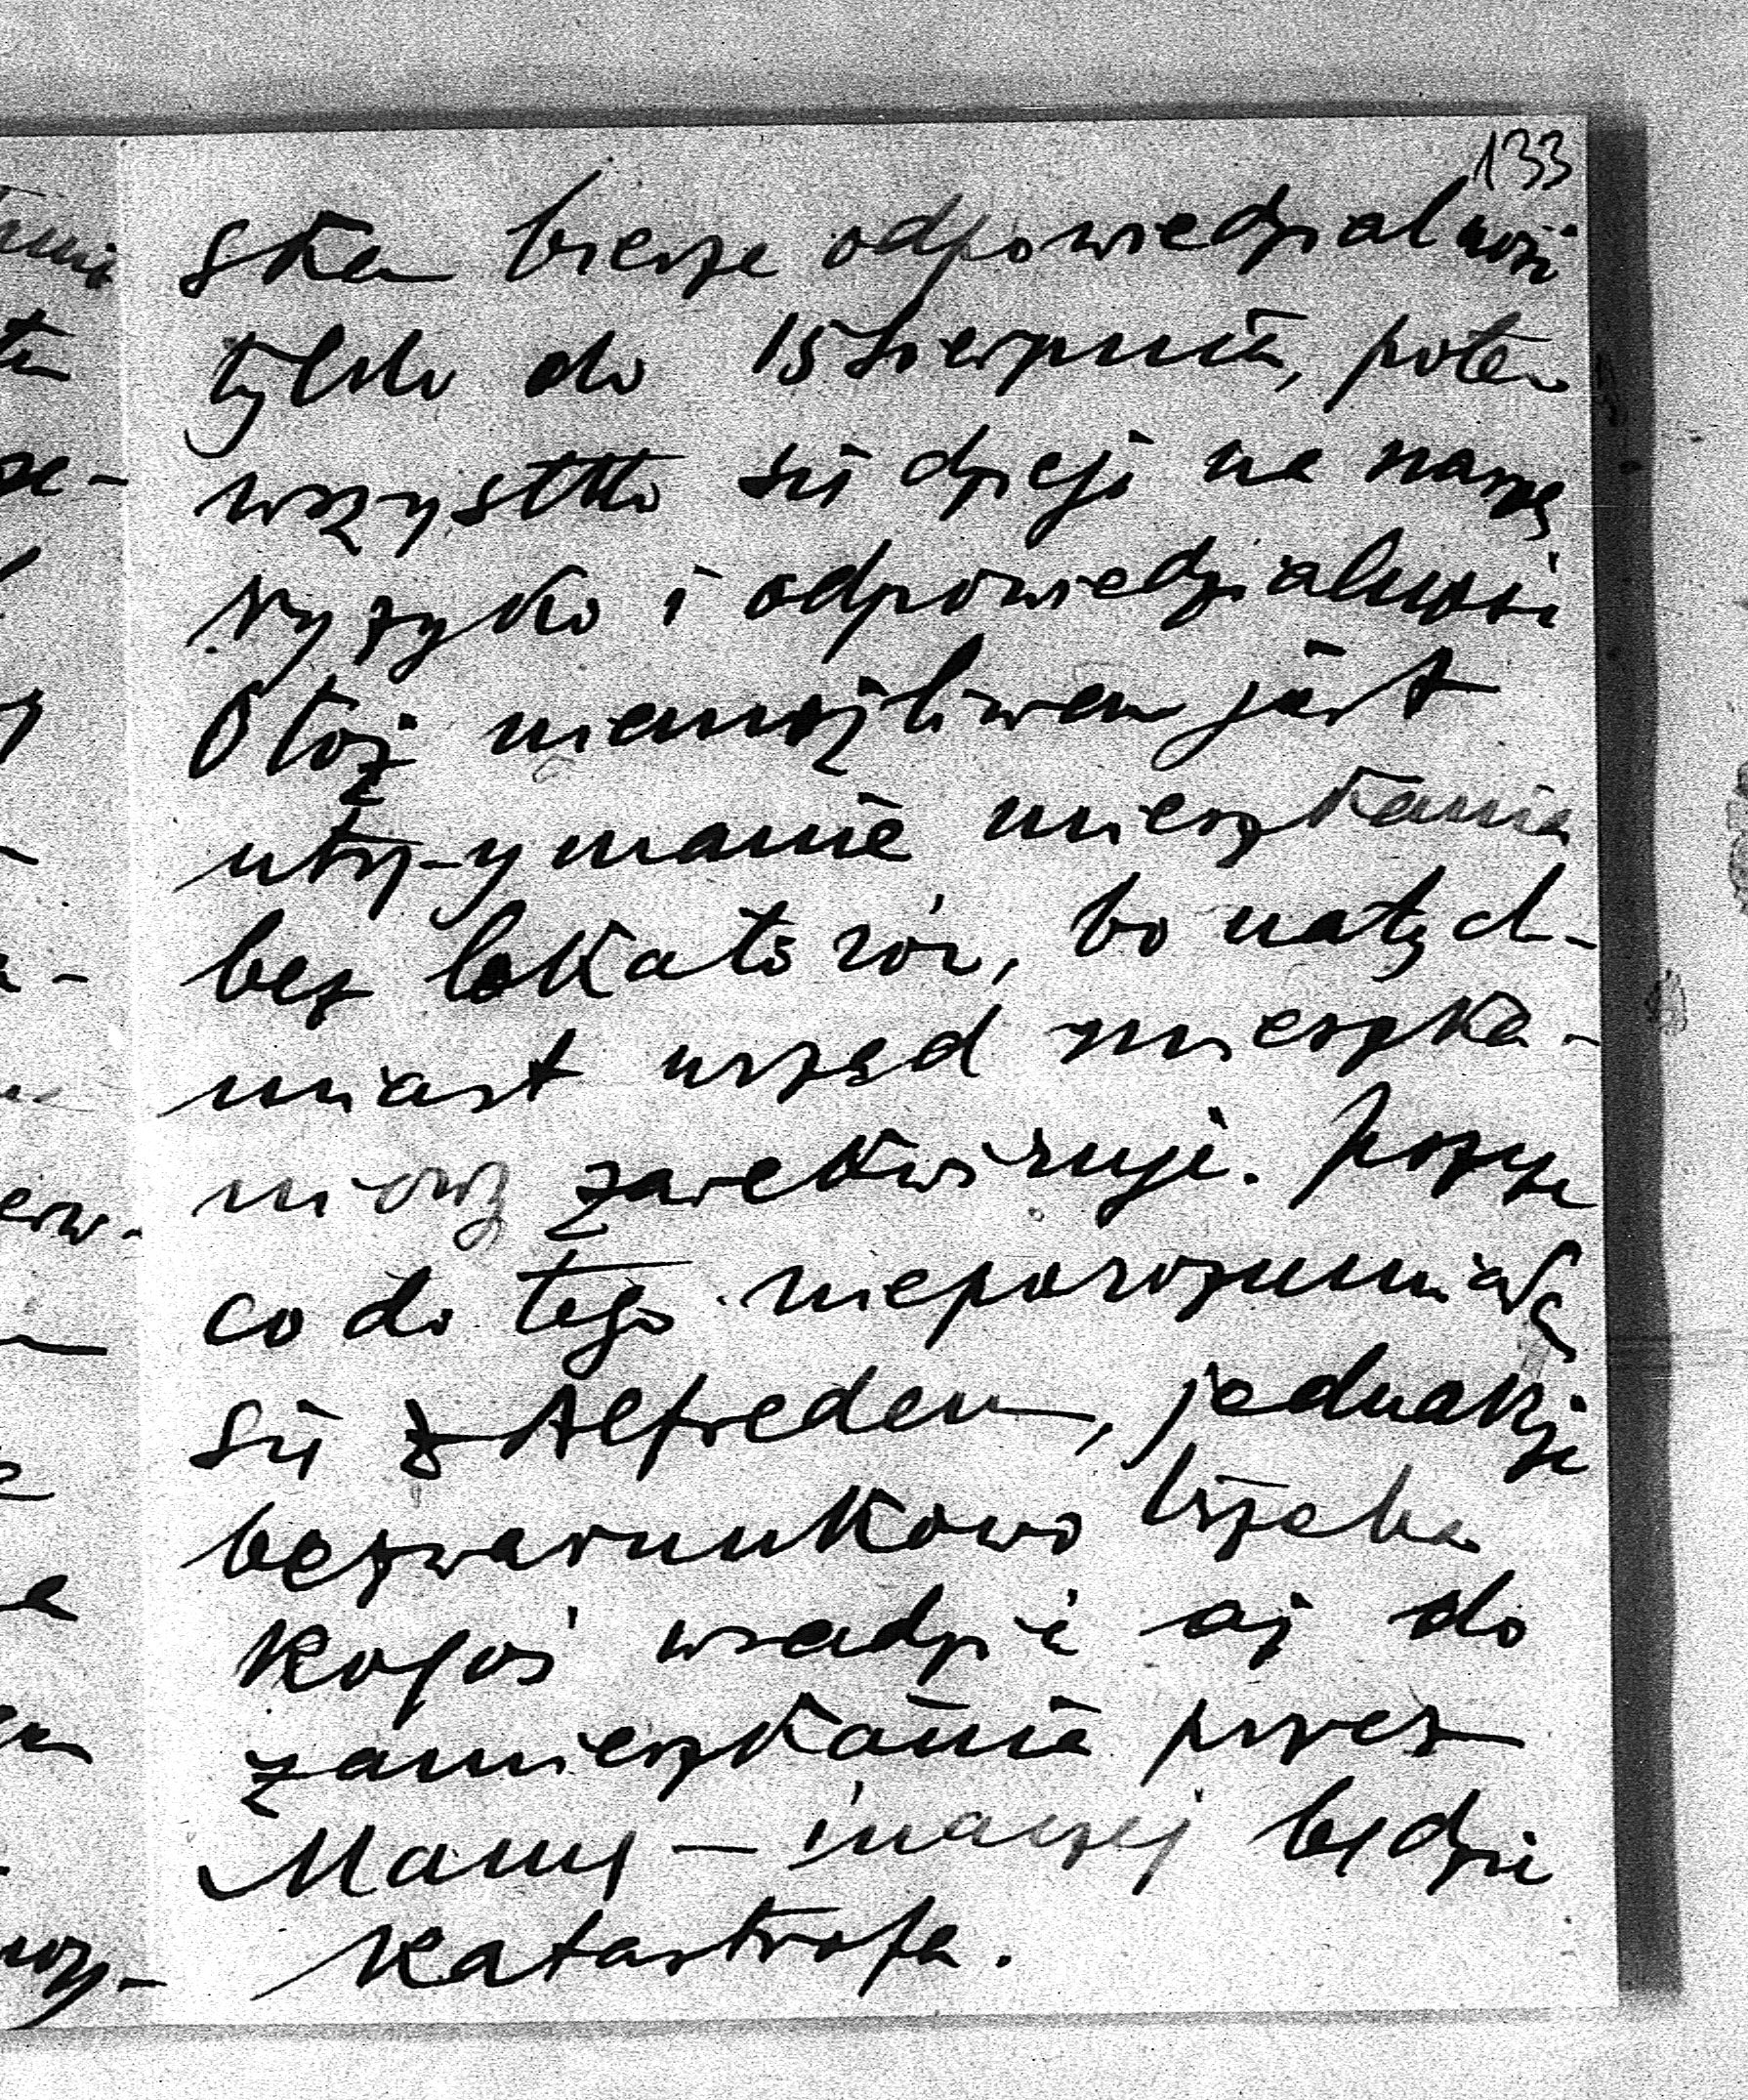 133
ska bierze odpowiedzialność
tylko do 15 sierpnia, potem
wszystko się dzieje na naszą
ryzyko i odpowiedzialność
Otóż niemożliwem jest
utrzymanie mieszkania
bez lokatorów, bo natych-
miast urząd mieszka-
niowy zarekwiruje. Proszę
co do tego nieporozumiałą
się z Alfredem, jednakże
bezwarunkowo trzeba
kogoś wsadzić aż do
zamieszkania przez
Mamę — inaczej będzie
katastrofa.